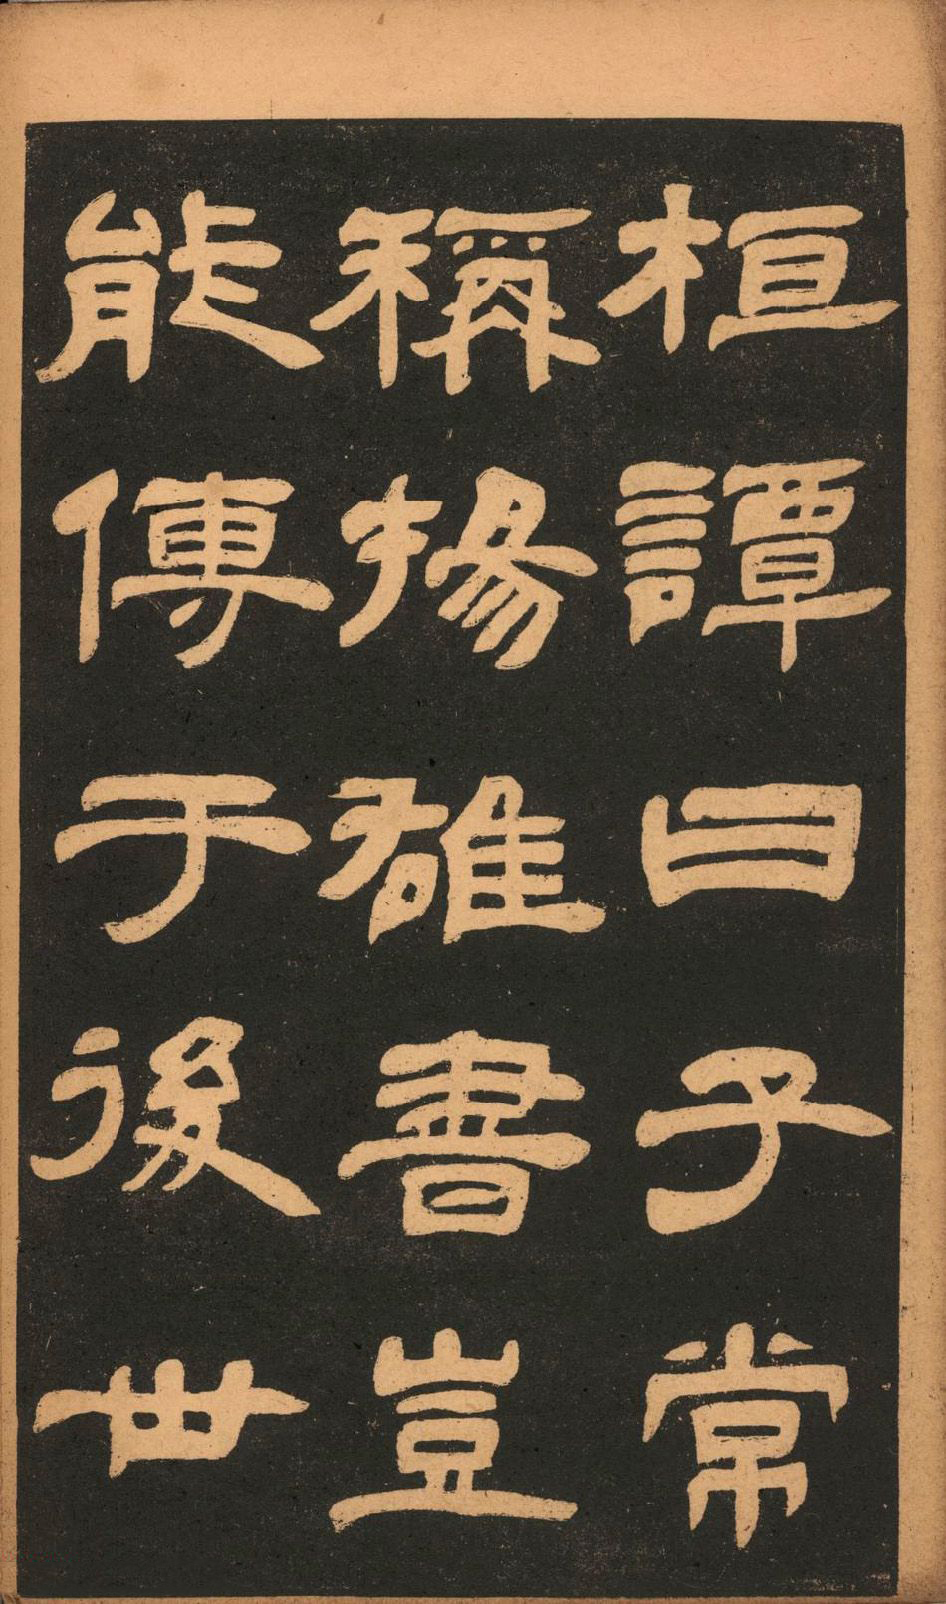 桓譚曰子常
稱揚雄書豈
能傳于後世